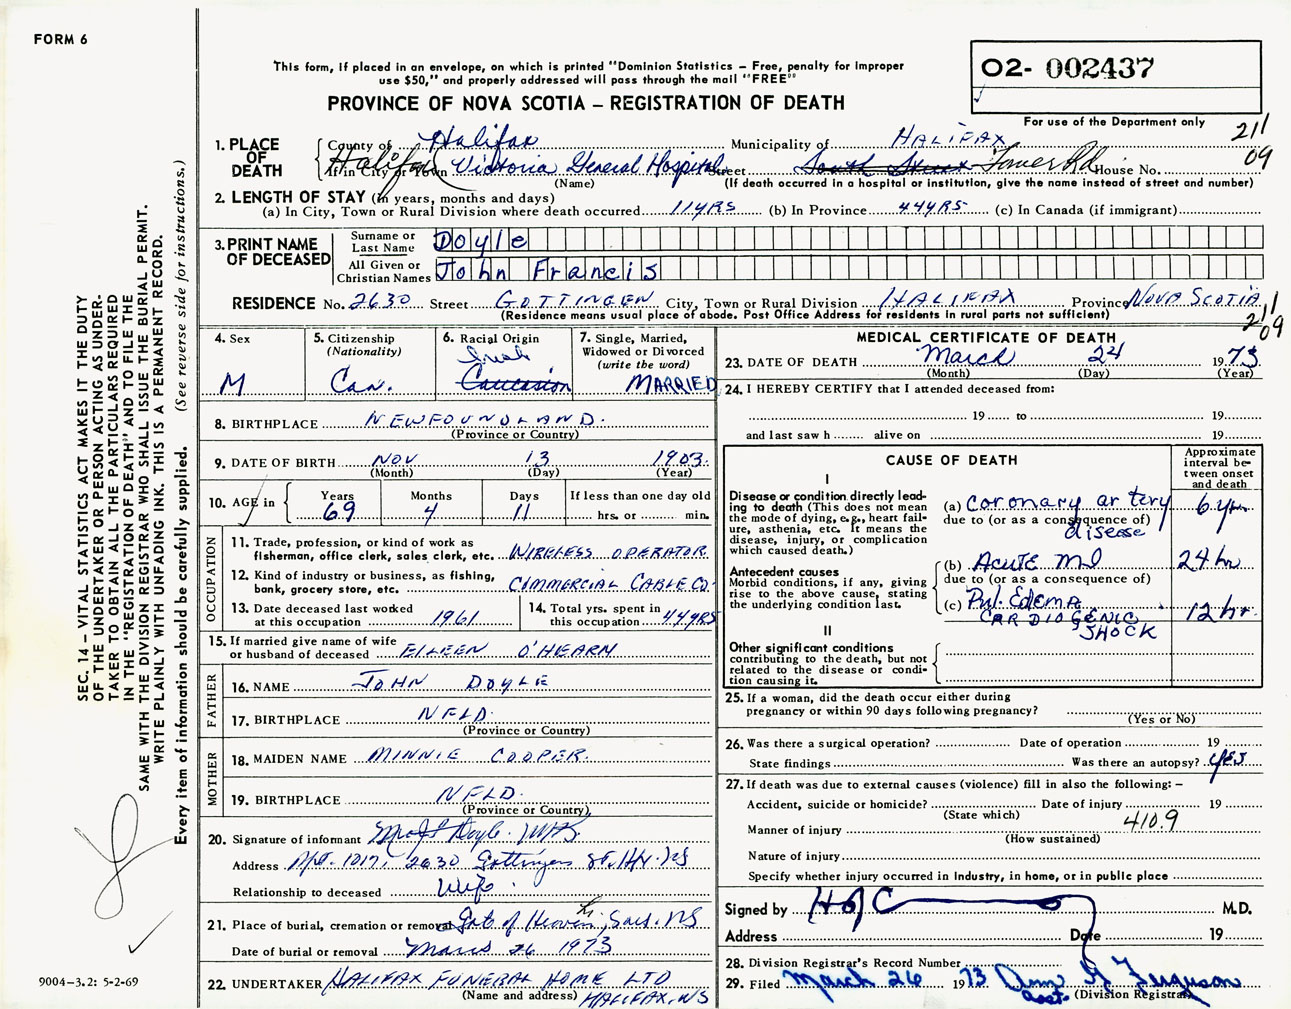 FORM 6
This form, if placed in an envelope, on which is printed "Dominion Statistics – Free, penalty for improper
use $50," and properly addressed will pass through the mail "FREE"
PROVINCE OF NOVA SCOTIA – REGISTRATION OF DEATH
O2- 002437
For use of the Department only
211
09
1. PLACE OF DEATH
County of Halifax Municipality of HALIFAX
If in City or Town Halifax Victoria General Hospital Street South Street Tower Rd. House No.
(Name) (If death occurred in a hospital or institution, give the name instead of street and number)
2. LENGTH OF STAY (In years, months and days)
(a) In City, Town or Rural Division where death occurred 11 YRS (b) In Province 44 YRS (c) In Canada (if immigrant)
3. PRINT NAME OF DECEASED
Surname or Last Name Doyle
All Given or Christian Names John Francis
RESIDENCE No. 2630 Street GOTTINGEN City, Town or Rural Division HALIFAX Province NOVA SCOTIA
(Residence means usual place of abode. Post Office Address for residents in rural parts not sufficient)
211
09
4. Sex M
5. Citizenship (Nationality) Can.
6. Racial Origin Irish Caucasion
7. Single, Married, Widowed or Divorced (write the word) MARRIED
8. BIRTHPLACE NEWFOUNDLAND.
(Province or Country)
9. DATE OF BIRTH NOV 13 1903.
(Month) (Day) (Year)
10. AGE in Years 69 Months 4 Days 11 If less than one day old hrs. or min.
OCCUPATION
11. Trade, profession, or kind of work as
fisherman, office clerk, sales clerk, etc. WIRELESS OPERATOR
12. Kind of industry or business, as fishing,
bank, grocery store, etc. COMMERCIAL CABLE CO.
13. Date deceased last worked
at this occupation 1961
14. Total yrs. spent in
this occupation 44 YRS
15. If married give name of wife
or husband of deceased EILEEN O'HEARN
FATHER
16. NAME JOHN DOYLE
17. BIRTHPLACE NFLD.
(Province or Country)
MOTHER
18. MAIDEN NAME MINNIE COOPER.
19. BIRTHPLACE NFLD.
(Province or Country)
20. Signature of informant Doyle
Address Apt. 1017, 2630 Gottingen St. Hfx. NS
Relationship to deceased Wife.
21. Place of burial, cremation or removal Gate of Heaven, Sack. NS
Date of burial or removal March 26 1973
22. UNDERTAKER HALIFAX FUNERAL HOME LTD
(Name and address) HALIFAX, NS
MEDICAL CERTIFICATE OF DEATH
23. DATE OF DEATH March 24 1973
(Month) (Day) (Year)
24. I HEREBY CERTIFY that I attended deceased from:
19 to 19
and last saw h alive on 19
CAUSE OF DEATH
Approximate interval between onset and death
I
Disease or condition directly leading to death (This does not mean the mode of dying, e.g., heart failure, asthenia, etc. It means the disease, injury, or complication which caused death.)
(a) coronary artery disease 6 yr.
due to (or as a consequence of)
Antecedent causes
Morbid conditions, if any, giving rise to the above cause, stating the underlying condition last.
(b) Acute MI 24 hr
due to (or as a consequence of)
(c) Pul. Edema 12 hr.
CARDIOGENIC SHOCK
II
Other significant conditions
contributing to the death, but not related to the disease or condition causing it.
25. If a woman, did the death occur either during
pregnancy or within 90 days following pregnancy?
(Yes or No)
26. Was there a surgical operation? Date of operation 19
State findings Was there an autopsy? yes
27. If death was due to external causes (violence) fill in also the following: –
Accident, suicide or homicide? Date of injury 19
(State which) 410.9
Manner of injury
(How sustained)
Nature of injury
Specify whether injury occurred in industry, in home, or in public place
Signed by M.D.
Address Date 19
28. Division Registrar's Record Number
29. Filed March 26 1973 Ann G Ferguson
Asst. (Division Registrar)
SEC. 14 – VITAL STATISTICS ACT MAKES IT THE DUTY
OF THE UNDERTAKER OR PERSON ACTING AS UNDERTAKER TO OBTAIN ALL THE PARTICULARS REQUIRED
IN THE "REGISTRATION OF DEATH" AND TO FILE THE
SAME WITH THE DIVISION REGISTRAR WHO SHALL ISSUE THE BURIAL PERMIT.
WRITE PLAINLY WITH UNFADING INK. THIS IS A PERMANENT RECORD.
Every item of information should be carefully supplied. (See reverse side for instructions.)
9004-3.2: 5-2-69